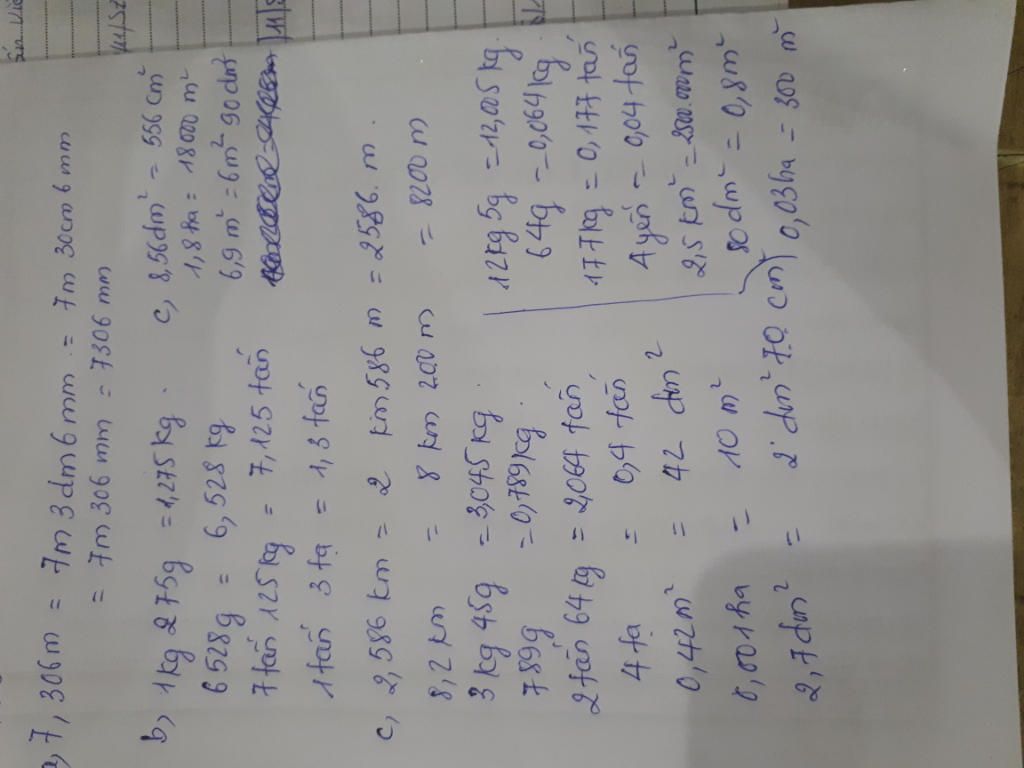 a, 7,306m = 7m 3dm 6mm = 7m 30cm 6mm
= 7m 306mm = 7306mm
b, 1kg 275g = 1,275kg.
6528g = 6,528kg
7tấn 125kg = 7,125 tấn
1tấn 3tạ = 1,3 tấn
c, 8,56dm² = 556cm²
1,8ha = 18000m²
6,9m² = 6m² 90dm²
c, 2,586km = 2 km 586 m = 2586 m.
8,2km = 8km 200m = 8200m
3kg 45g = 3,045kg.
789g = 0,789kg.
2tấn 64kg = 2,064 tấn
4tạ = 0,4 tấn
0,42m² = 42 dm²
0,001ha = 10m²
2,7dm² = 2 dm² 70 cm²
12kg 5g = 12,005kg.
64g = 0,064kg.
177kg = 0,177 tấn
4yến = 0,04 tấn
2,5km² = 2500.000m²
80dm² = 0,8m²
0,03ha = 300m²